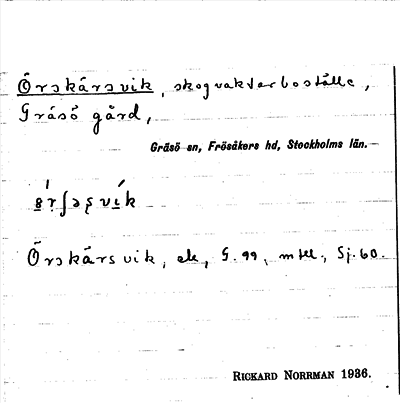 Örskärsvik, skogvaktarboställe,
Gräsö gård,
Gräsö sn, Frösåkers hd, Stockholms län.
Örskärsvik, ek, G. 99, mtl., Sj. 60.
RICKARD NORRMAN 1936.